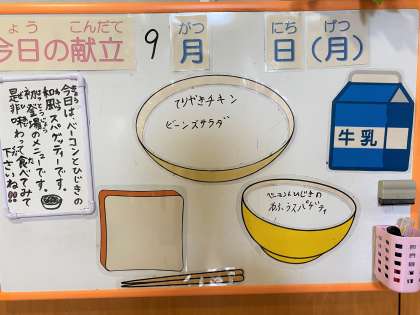 きょう こんだて がつ にち げつ
今日の献立 9 月 日 (月)
今日は、ベーコンとひじきの
和風スパゲッティーです。
初登場のメニューです。
是非味わって食べてみて
下さいね!!!
てりやきチキン
ビーンズサラダ
ベーコンとひじきの
わふうスパゲティ
牛乳